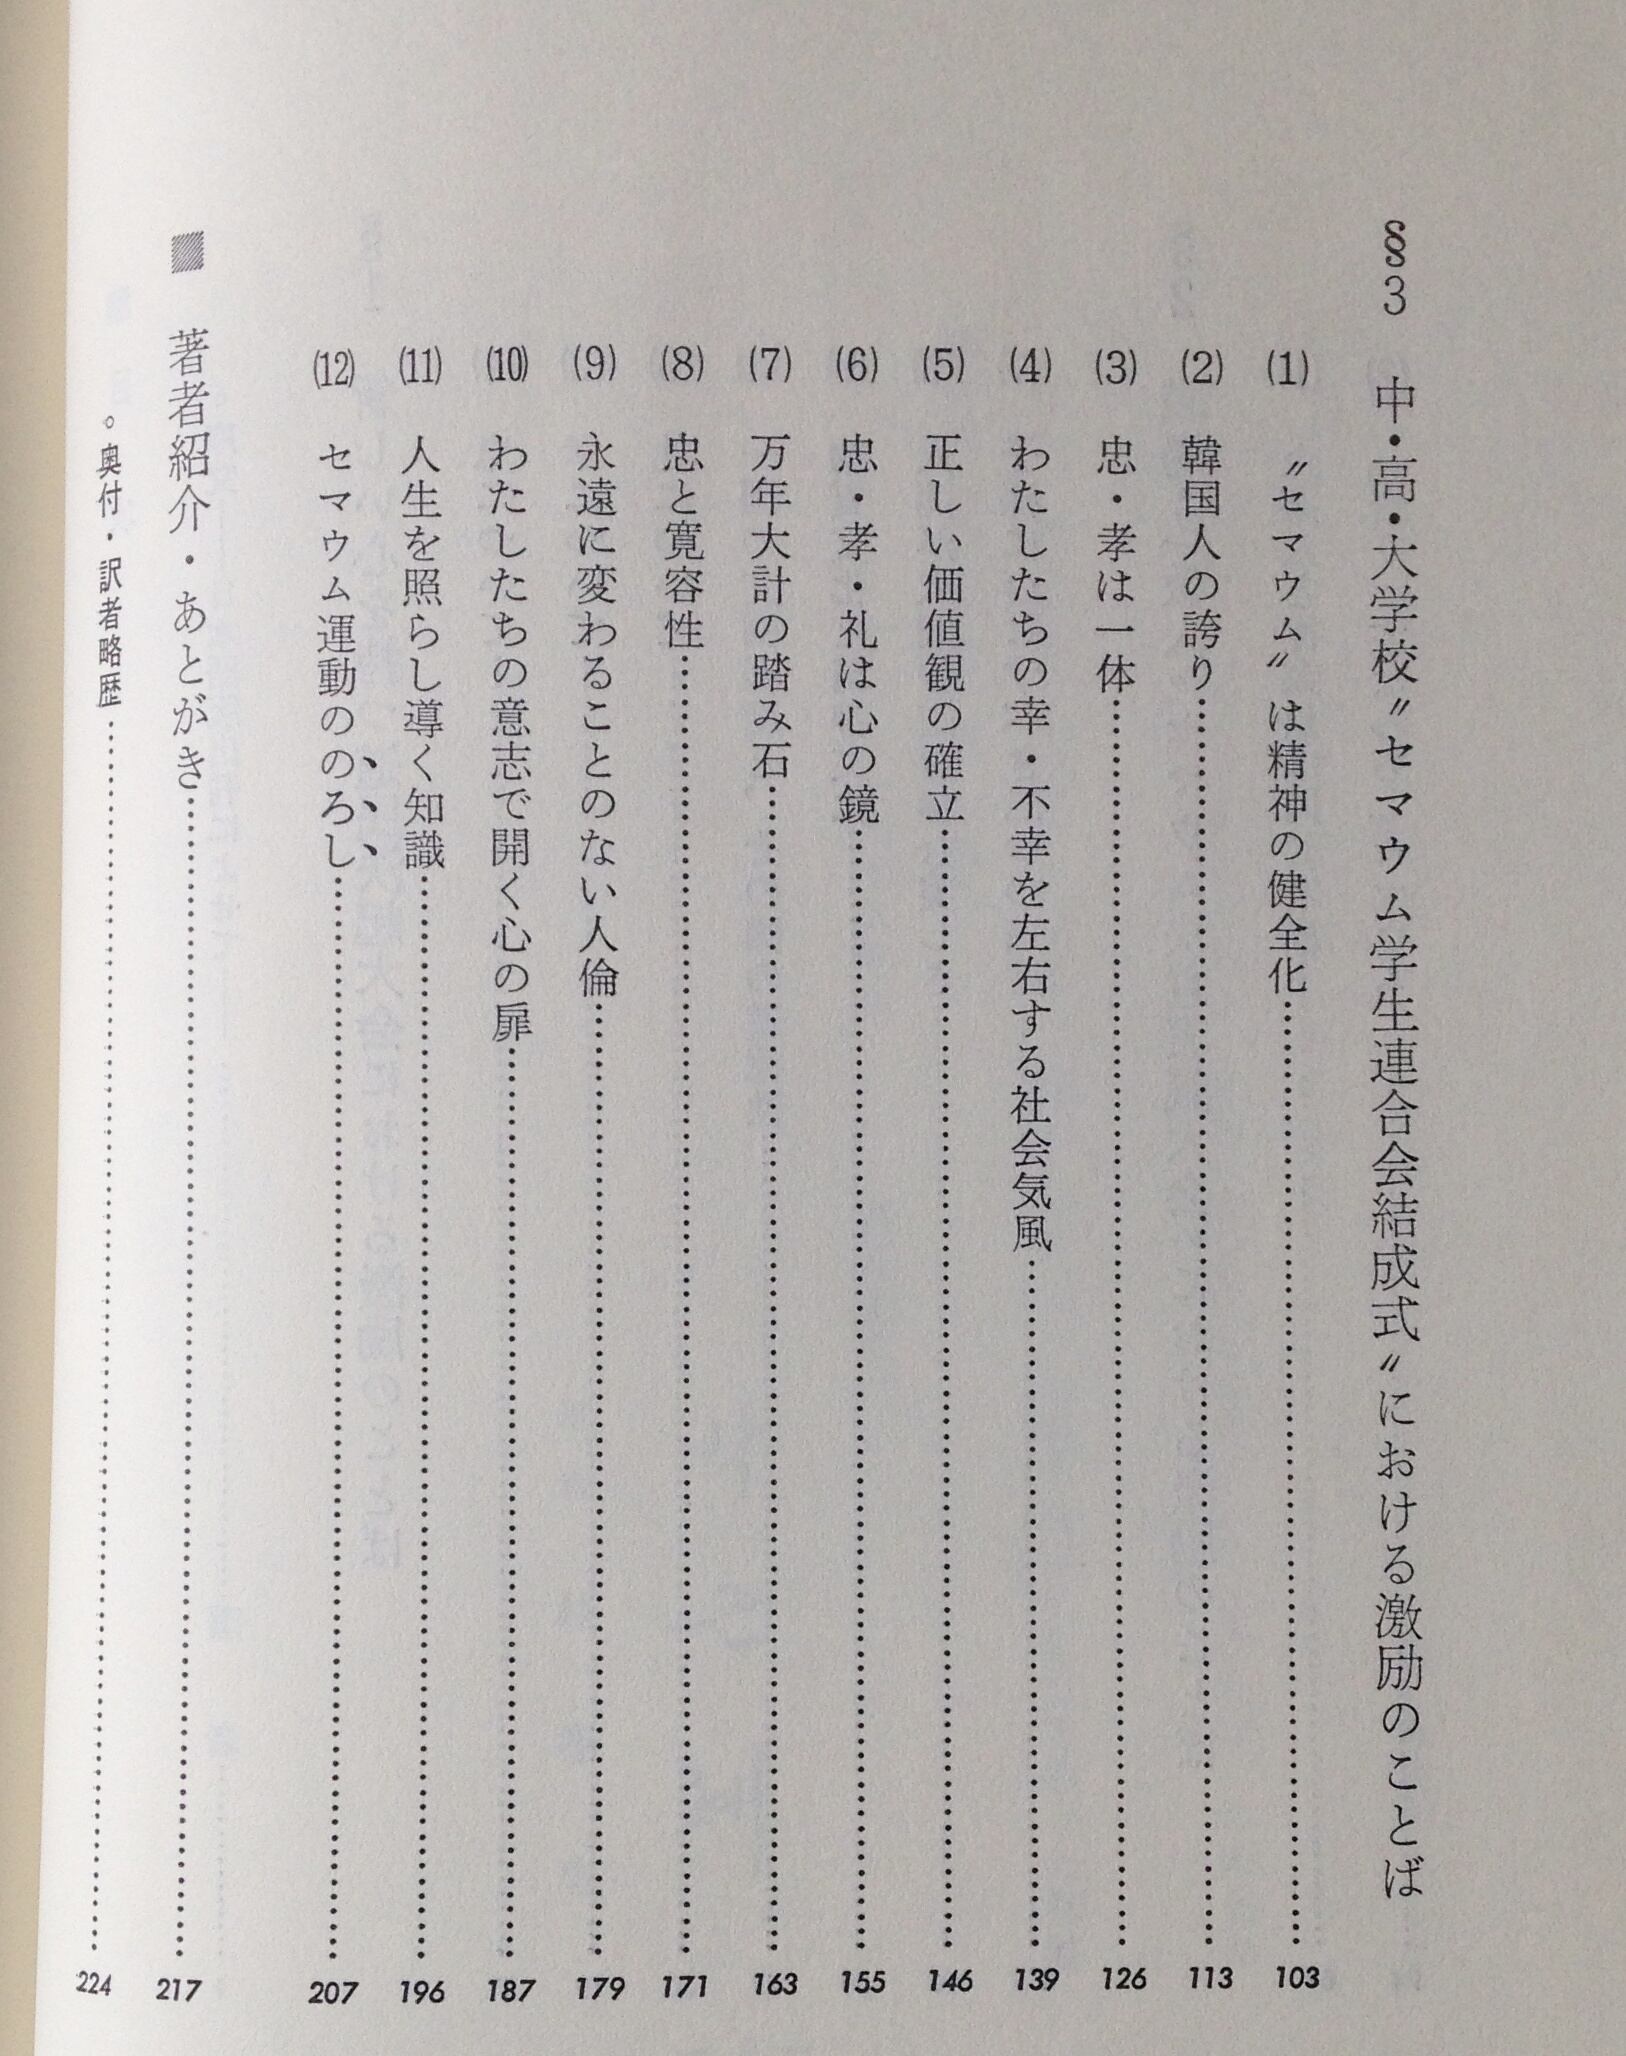 §3 中・高・大学校〝セマウム学生連合会結成式〟における激励のことば
(1) 〝セマウム〟は精神の健全化…………103
(2) 韓国人の誇り…………113
(3) 忠・孝は一体…………126
(4) わたしたちの幸・不幸を左右する社会気風…………139
(5) 正しい価値観の確立…………146
(6) 忠・孝・礼は心の鏡…………155
(7) 万年大計の踏み石…………163
(8) 忠と寛容性…………171
(9) 永遠に変わることのない人倫…………179
(10) わたしたちの意志で開く心の扉…………187
(11) 人生を照らし導く知識…………196
(12) セマウム運動ののろし…………207
■ 著者紹介・あとがき…………217
○奥付・訳者略歴…………224